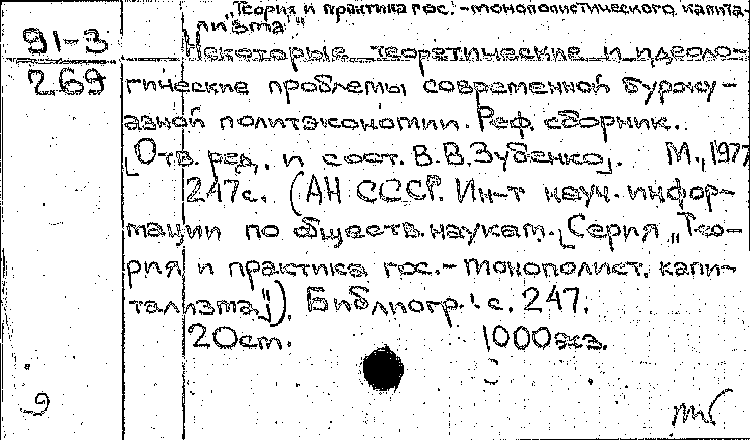 „Теория и практика гос.-монополистического капита-
лизма"
91-3
269
Некоторые теоретические и идеоло-
гические проблемы современной буржу-
азной политэкономии. Реф. сборник.
[Отв. ред. и сост. В.В.Зубенко]. М., 1977
247с. (АН СССР. Ин-т науч. инфор-
мации по обществ. наукам. [Серия „Тео-
рия и практика гос.-монополист. капи-
тализма"]). Библиогр.: с. 247.
20см. 1000экз.